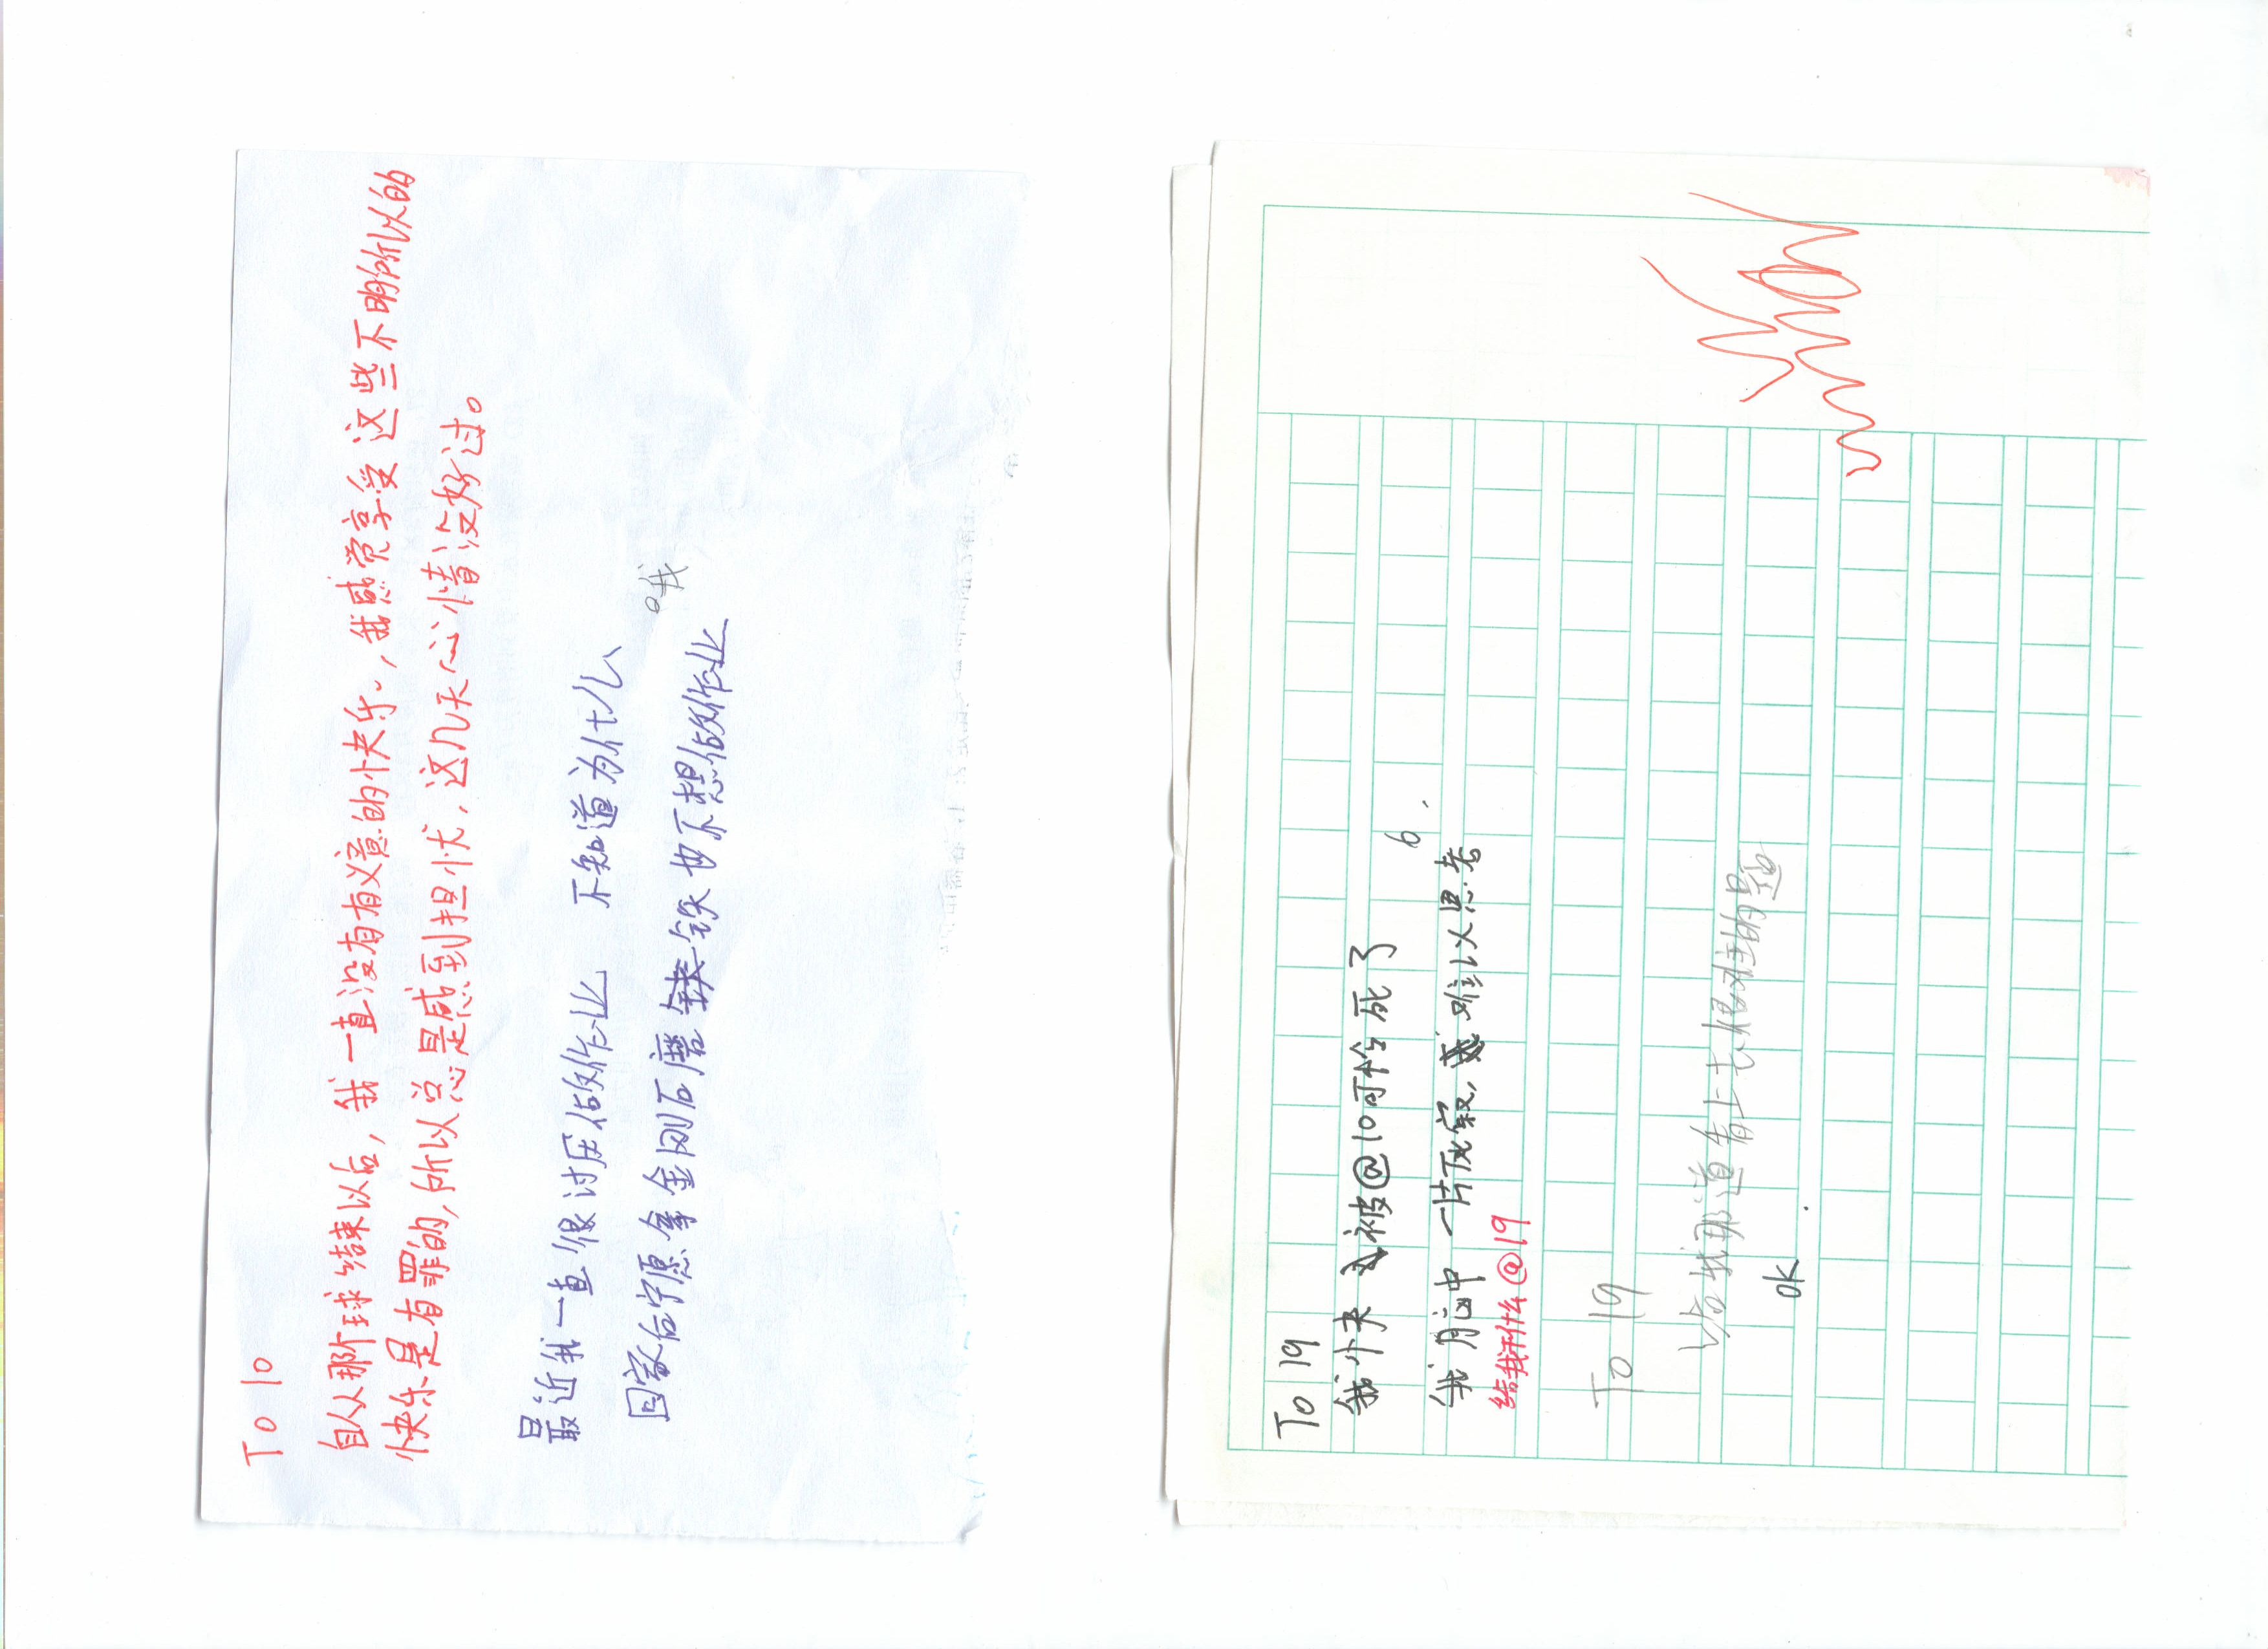 To 10
自从那个球结束以后，我一直没有有意义的快乐，我感觉享受这些不明所以的
快乐是有罪的，所以总是感到担忧，这几天心情没好过。
最近我一直很讨厌做作业 不知道为什么
回家后宁愿拿金刚石磨铁也不想做作业
哦
To 19
我快被@10可怜死了
6
我脑中一片死寂，难以思考
给我讲什么@19
To 19
ok